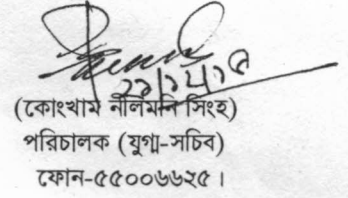 (কোংখাম নীলমনি সিংহ)
পরিচালক (যুগ্ম-সচিব)
ফোন-৫৫০০৬৬২৫।